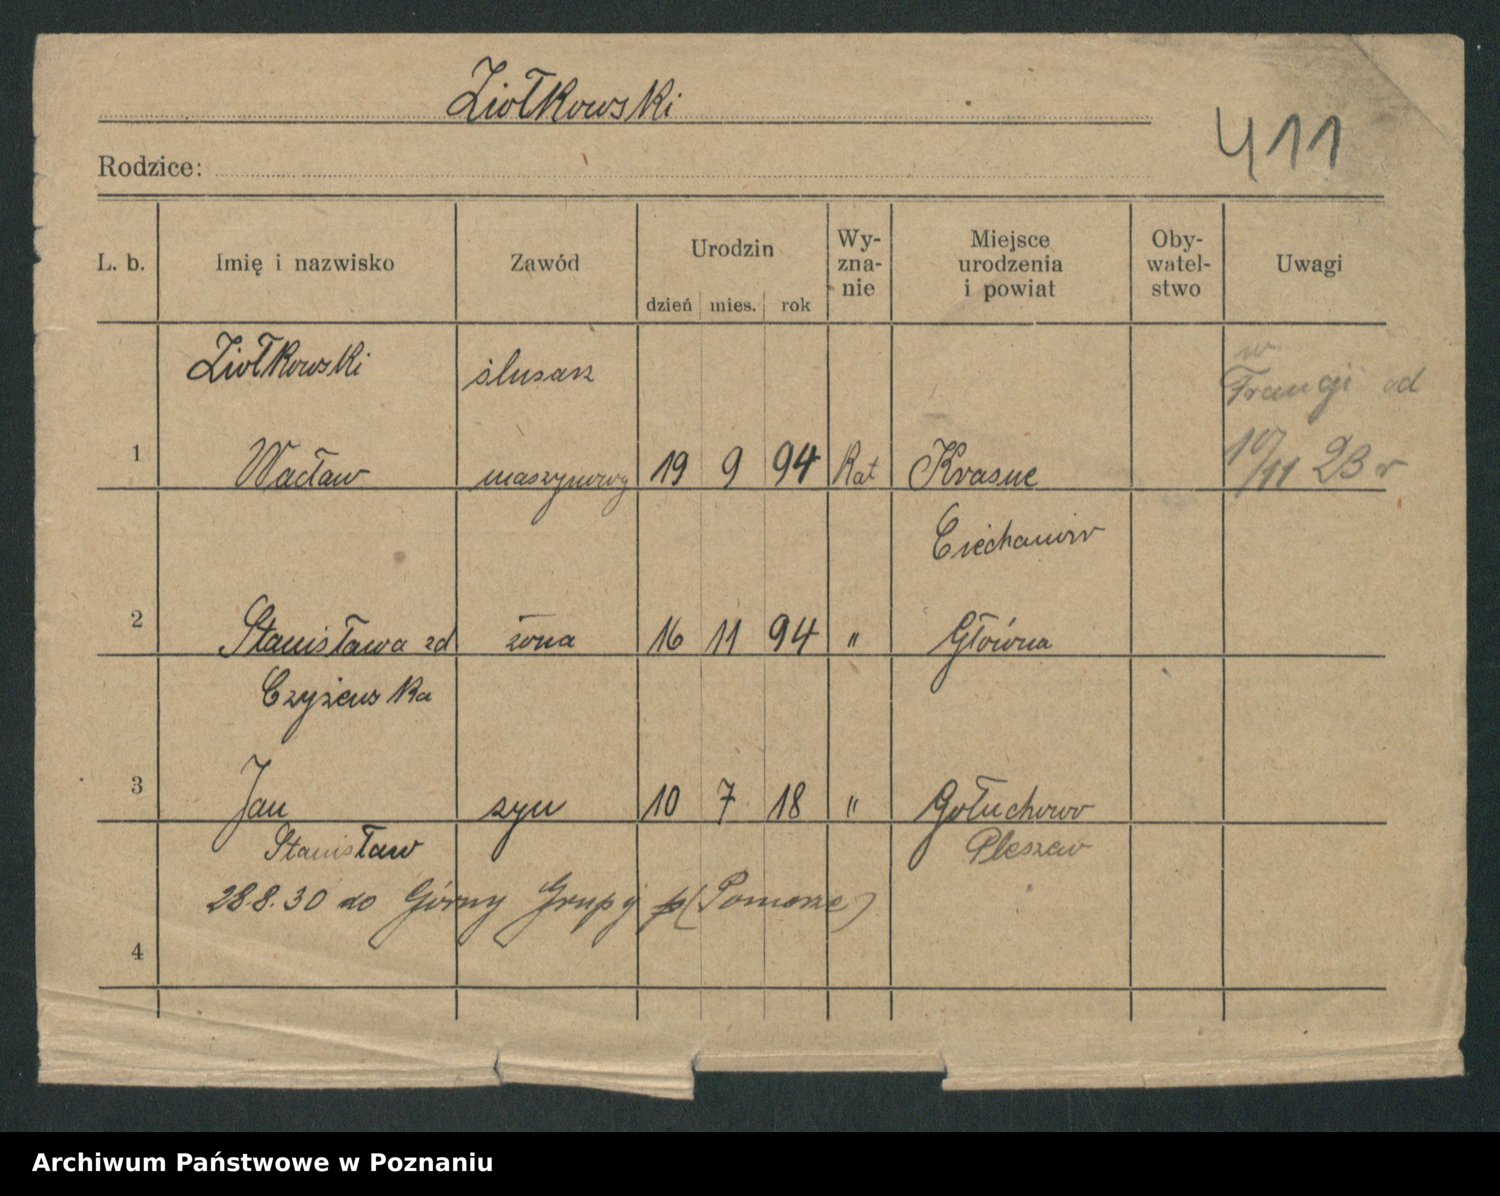 Ziołkowski
411
Rodzice:
L. b. Imię i nazwisko Zawód Urodzin Wy-zna-nie Miejsce urodzenia i powiat Oby-watel-stwo Uwagi
dzień mies. rok
Ziołkowski ślusarz w Francji od
1 Wacław maszynowy 19 9 94 Kat Krasne 10/11 23 r
Ciechanów
2 Stanisława zd żona 16 11 94 " Główna
Czyżewska
3 Jan syn 10 7 18 " Gołuchowo
Stanisław Pleszew
28.8.30 do Górny Grupy (Pomorze)
4
Archiwum Państwowe w Poznaniu